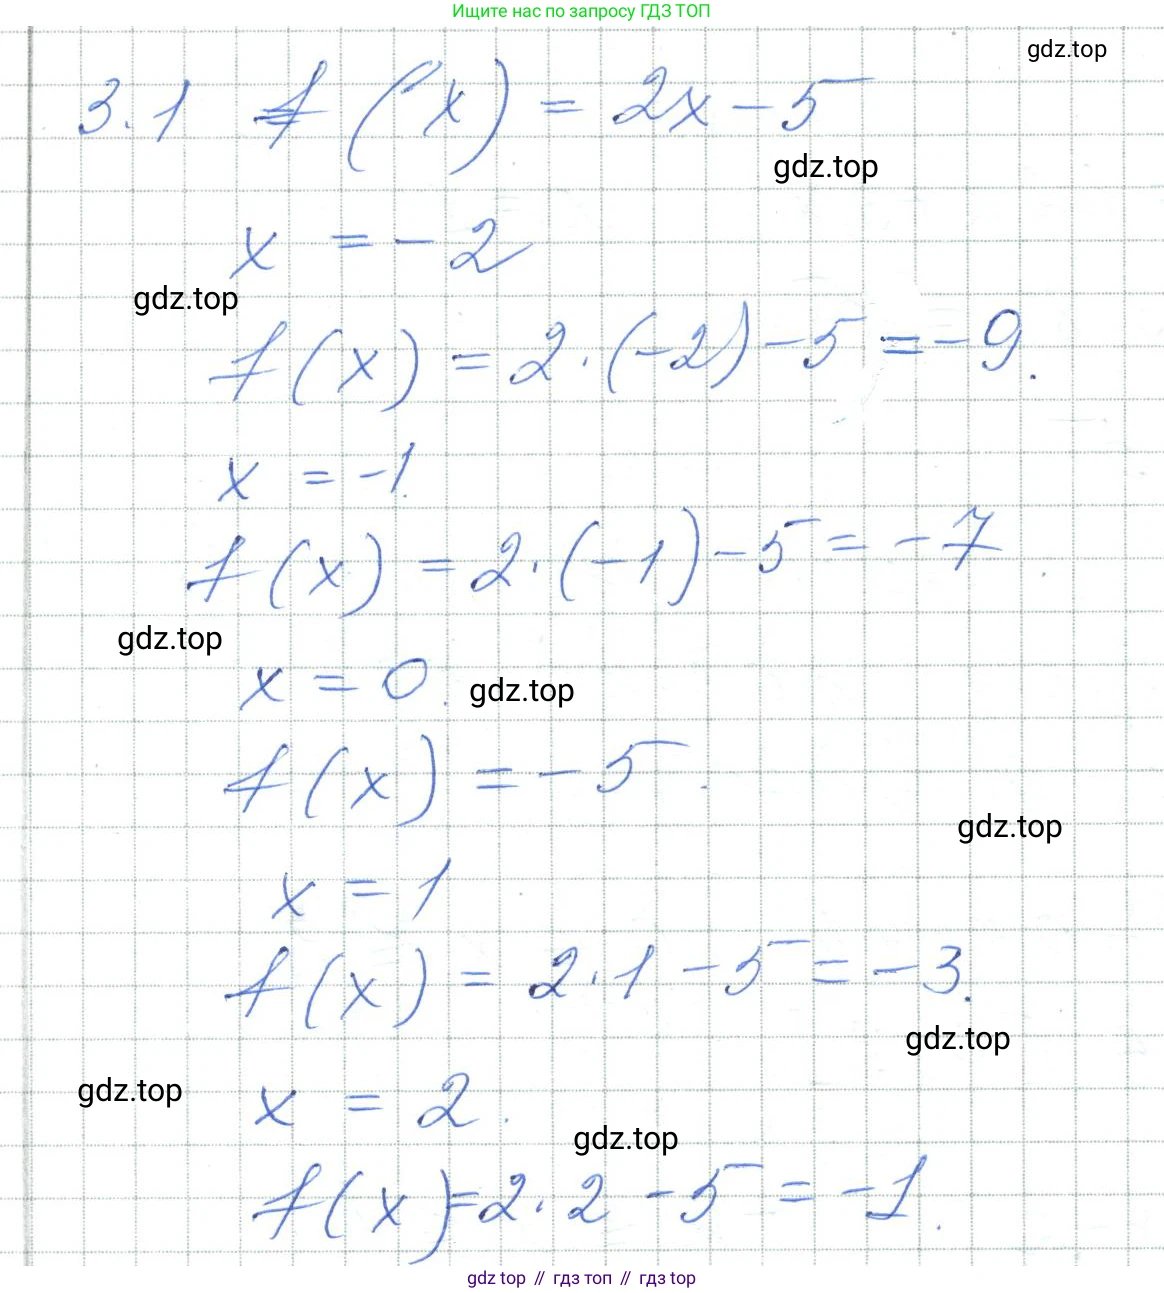 Ищите нас по запросу ГДЗ ТОП
gdz.top
3.1 f(x) = 2x - 5
gdz.top
x = -2
gdz.top
f(x) = 2·(-2) - 5 = -9.
x = -1.
f(x) = 2·(-1) - 5 = -7
gdz.top
x = 0.
gdz.top
f(x) = -5.
gdz.top
x = 1
f(x) = 2·1 - 5 = -3.
gdz.top
gdz.top
x = 2.
gdz.top
f(x) = 2·2 - 5 = -1.
gdz top // гдз топ // гдз top